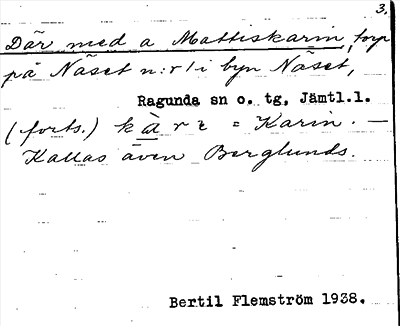 3.
Där med a Mattiskarin, torp
på Näset n:r 1 i byn Näset,
Ragunda sn o. tg, Jämtl.l.
(forts.) kàrɩ = Karin. —
Kallas även Berglunds.
Bertil Flemström 1938.